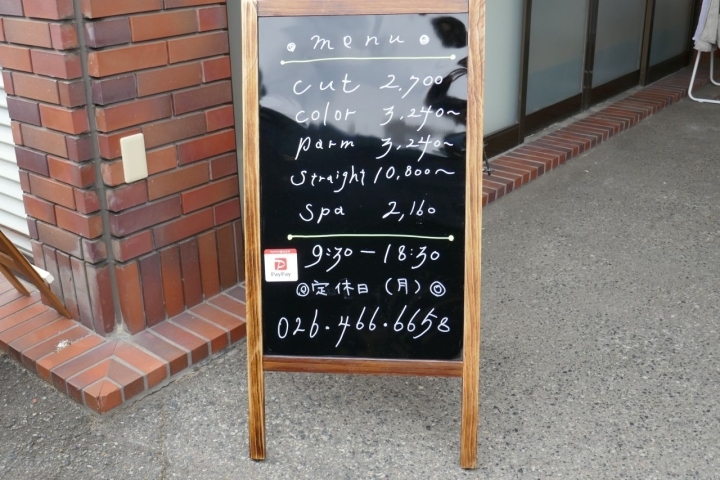 menu
cut 2,700
color 3,240~
parm 3,240~
straight 10,800~
spa 2,160
9:30-18:30
PayPay
◎定休日(月)◎
026.466.6658